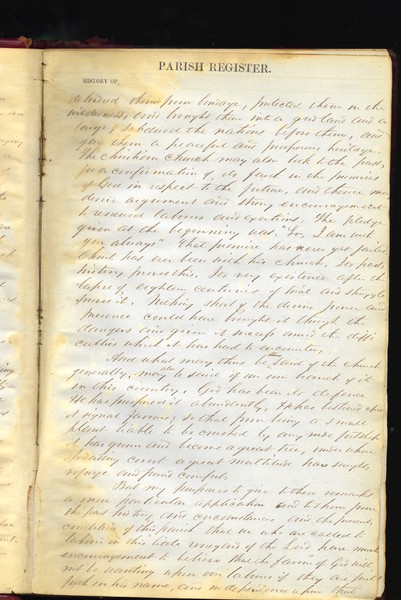 PARISH REGISTER.
HISTORY OF
delivered them from bondage, protected them in the
wilderness, and brought them into a good land and a
large, subdued the nations before them, and
gave them a peaceful and prosperous heritage
The Christian Church may also look to the past,
for a confirmation of its faith in the promises
of God in respect to the future, and thence may
derive argument and strong encouragement
to renewed labors and exertions. The pledge
given at the beginning was "Lo, I am with
you always" That promise has never yet failed
Christ has ever been with his Church. Its past
history proves this. Its very existence after the
lapse of eighteen centuries of trial and struggle
proves it. Nothing short of the divine power and
presence could have brought it through the
dangers and given it success amid the diffi
culties which it has had to encounter.
And what may thus be said of the Church
generally, may also be said of our own branch of it
in this country. God has been its defence
He has prospered it abundantly, He has bestowed upon
it signal favors, so that from being a small
plant liable to be crushed by any rude footstep
it has grown and become a great tree, under whose
covert a great multitude have sought
refuge and found comfort.
But my purpose is to give to these remarks
a more particular application and to show from
the past history and circumstances and the present
condition of this parish that we who are called to
labor in this little vineyard of the Lord have much
encouragement to believe that the favor of God will
not be wanting upon our labors if they are put
forth in his name, and in dependence upon that